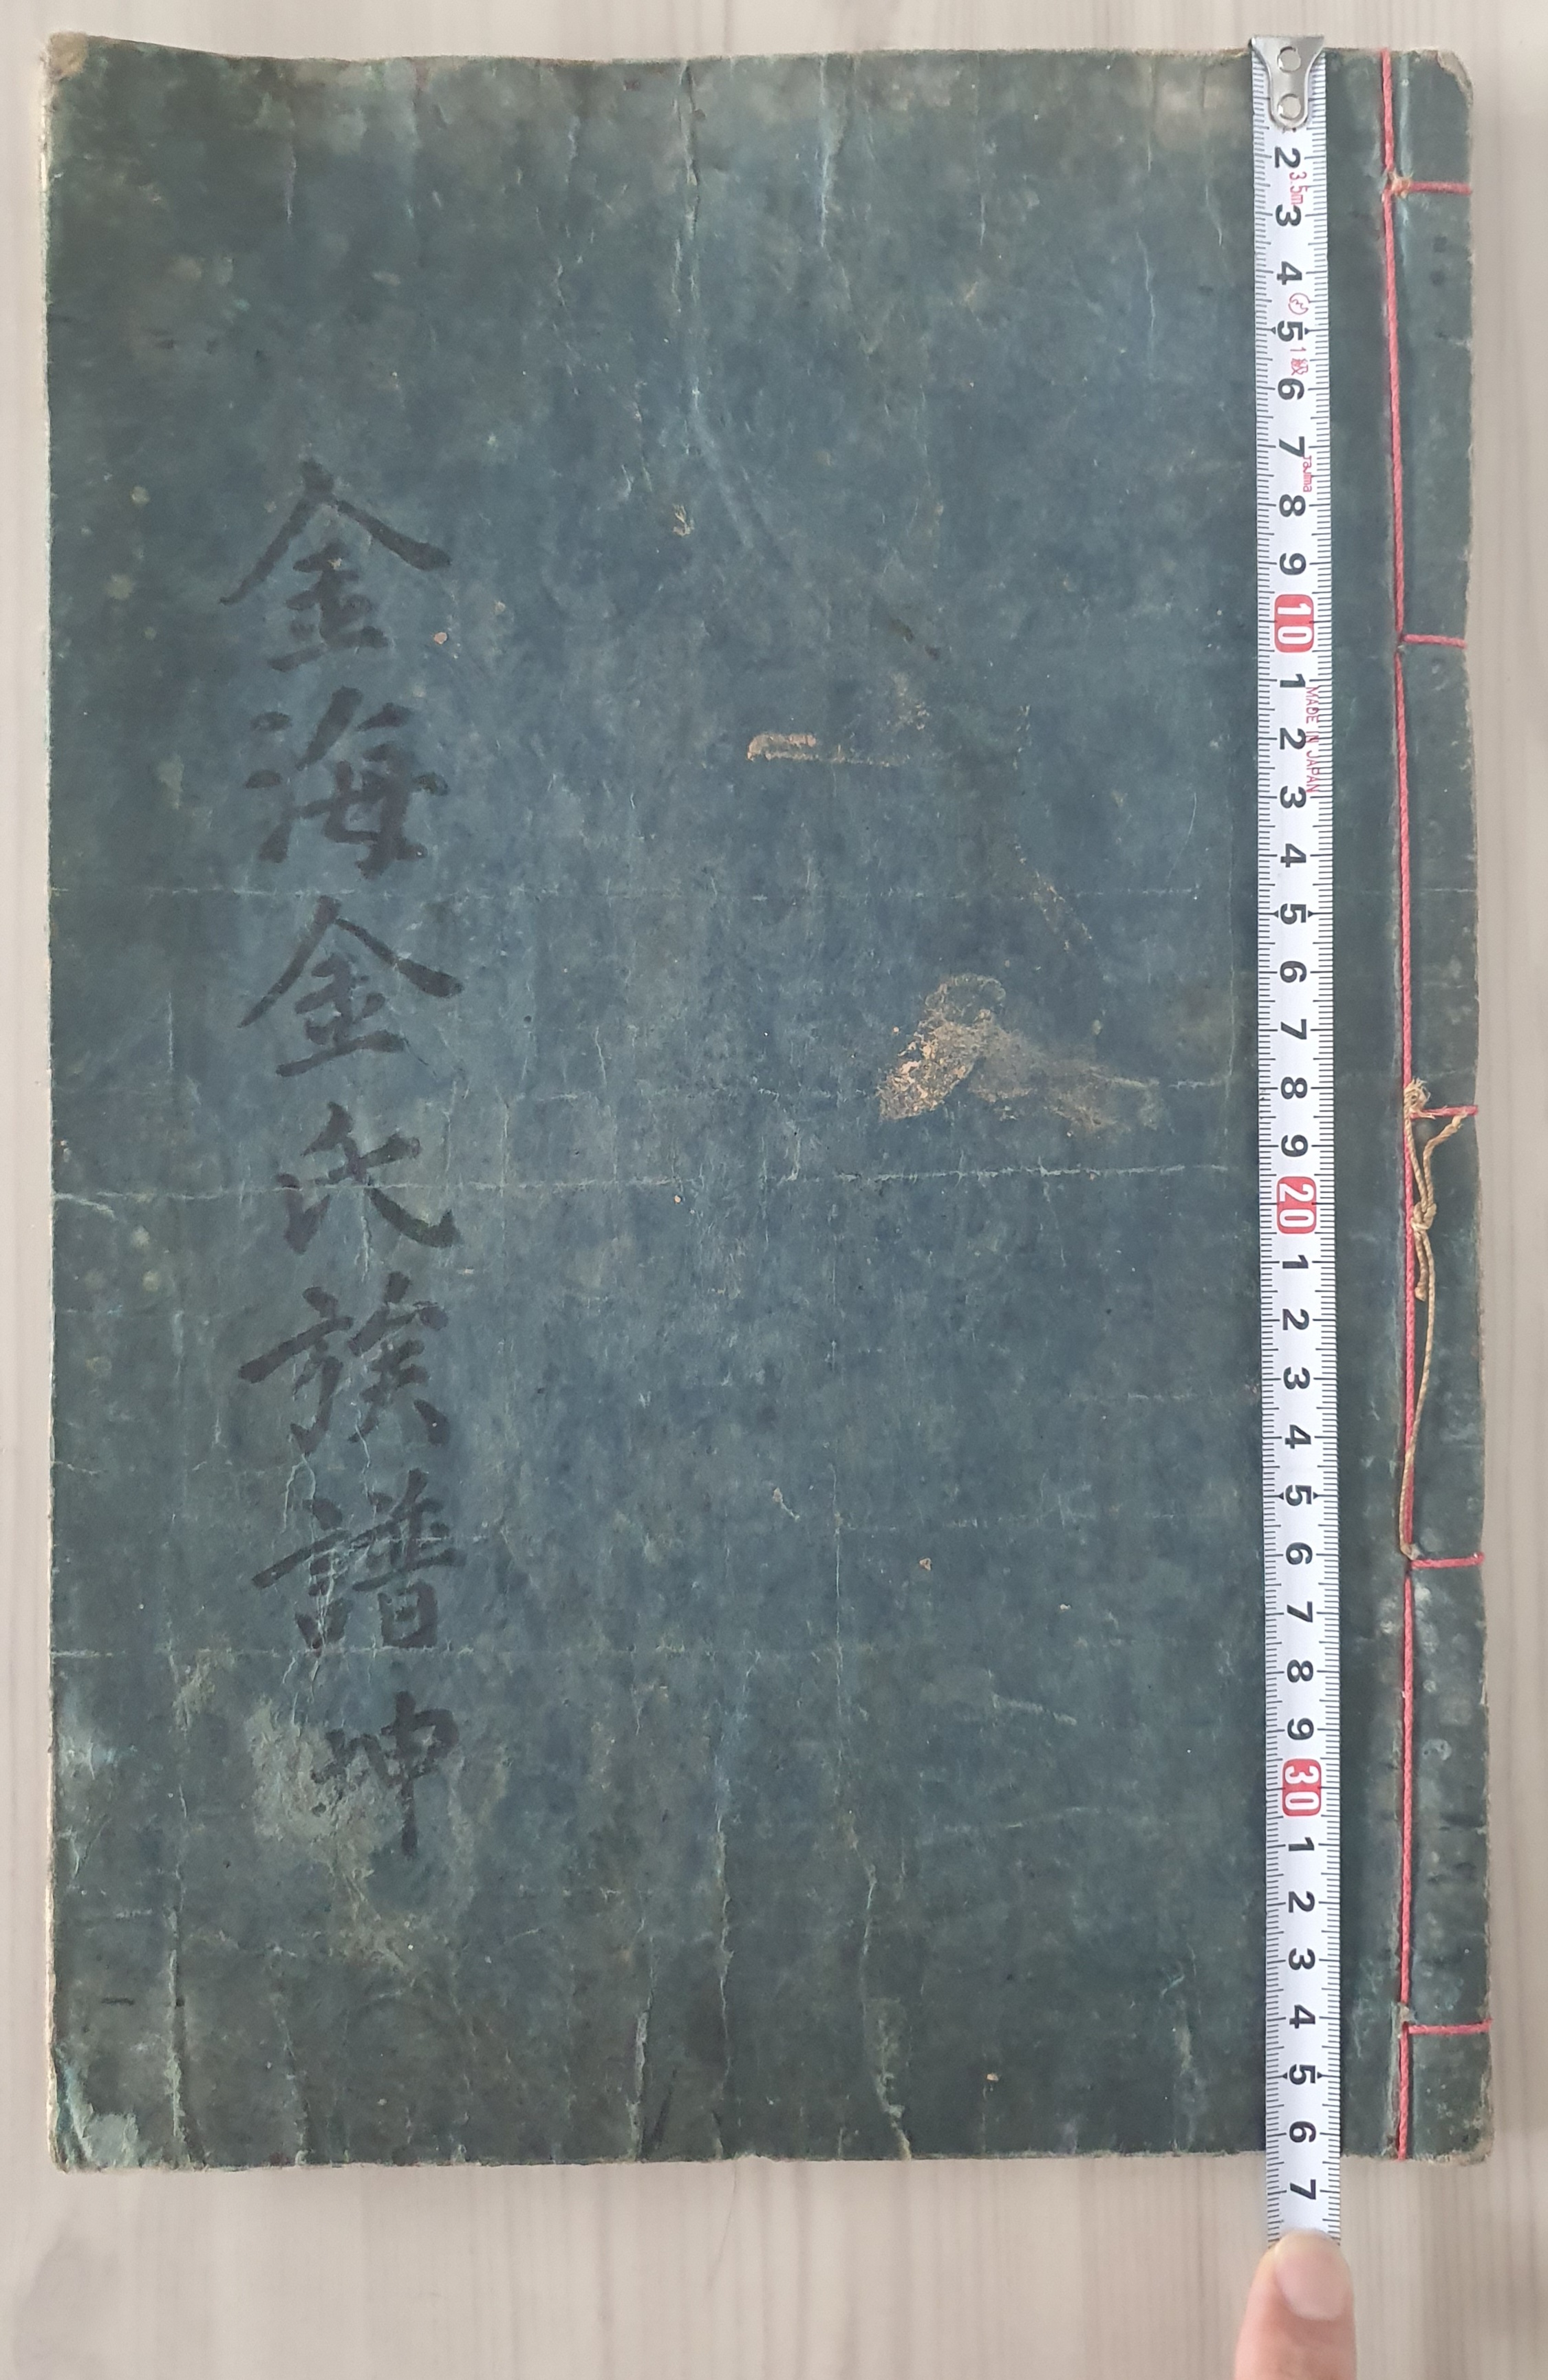 金海金氏族譜 坤
2 3 4 5 6 7 8 9 10 1 2 3 4 5 6 7 8 9 20 1 2 3 4 5 6 7 8 9 30 1 2 3 4 5 6 7
3.5m
1級
Tajima
MADE IN JAPAN